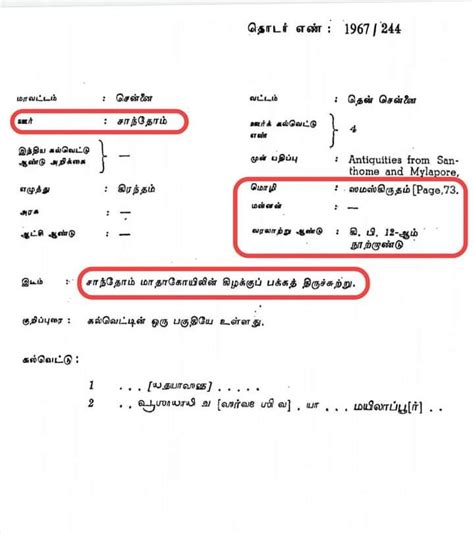 தொடர் எண் : 1967/244
மாவட்டம் : சென்னை
வட்டம் : தென் சென்னை
ஊர் : சாந்தோம்
ஊர்க் கல்வெட்டு எண் } 4
இந்திய கல்வெட்டு ஆண்டு அறிக்கை } —
முன் பதிப்பு : Antiquities from San-
thome and Mylapore,
எழுத்து : கிரந்தம்
மொழி : ஸமஸ்கிருதம் [Page,73.
அரசு : —
மன்னன் : —
ஆட்சி ஆண்டு : —
வரலாற்று ஆண்டு : கி. பி. 12-ஆம்
நூற்றாண்டு
இடம் : சாந்தோம் மாதாகோயிலின் கிழக்குப் பக்கத் திருச்சுற்று.
குறிப்புரை : கல்வெட்டின் ஒரு பகுதியே உள்ளது.
கல்வெட்டு :
1 . . .
2 . . . யா . . . மயிலாப்பூ[ர்] . .